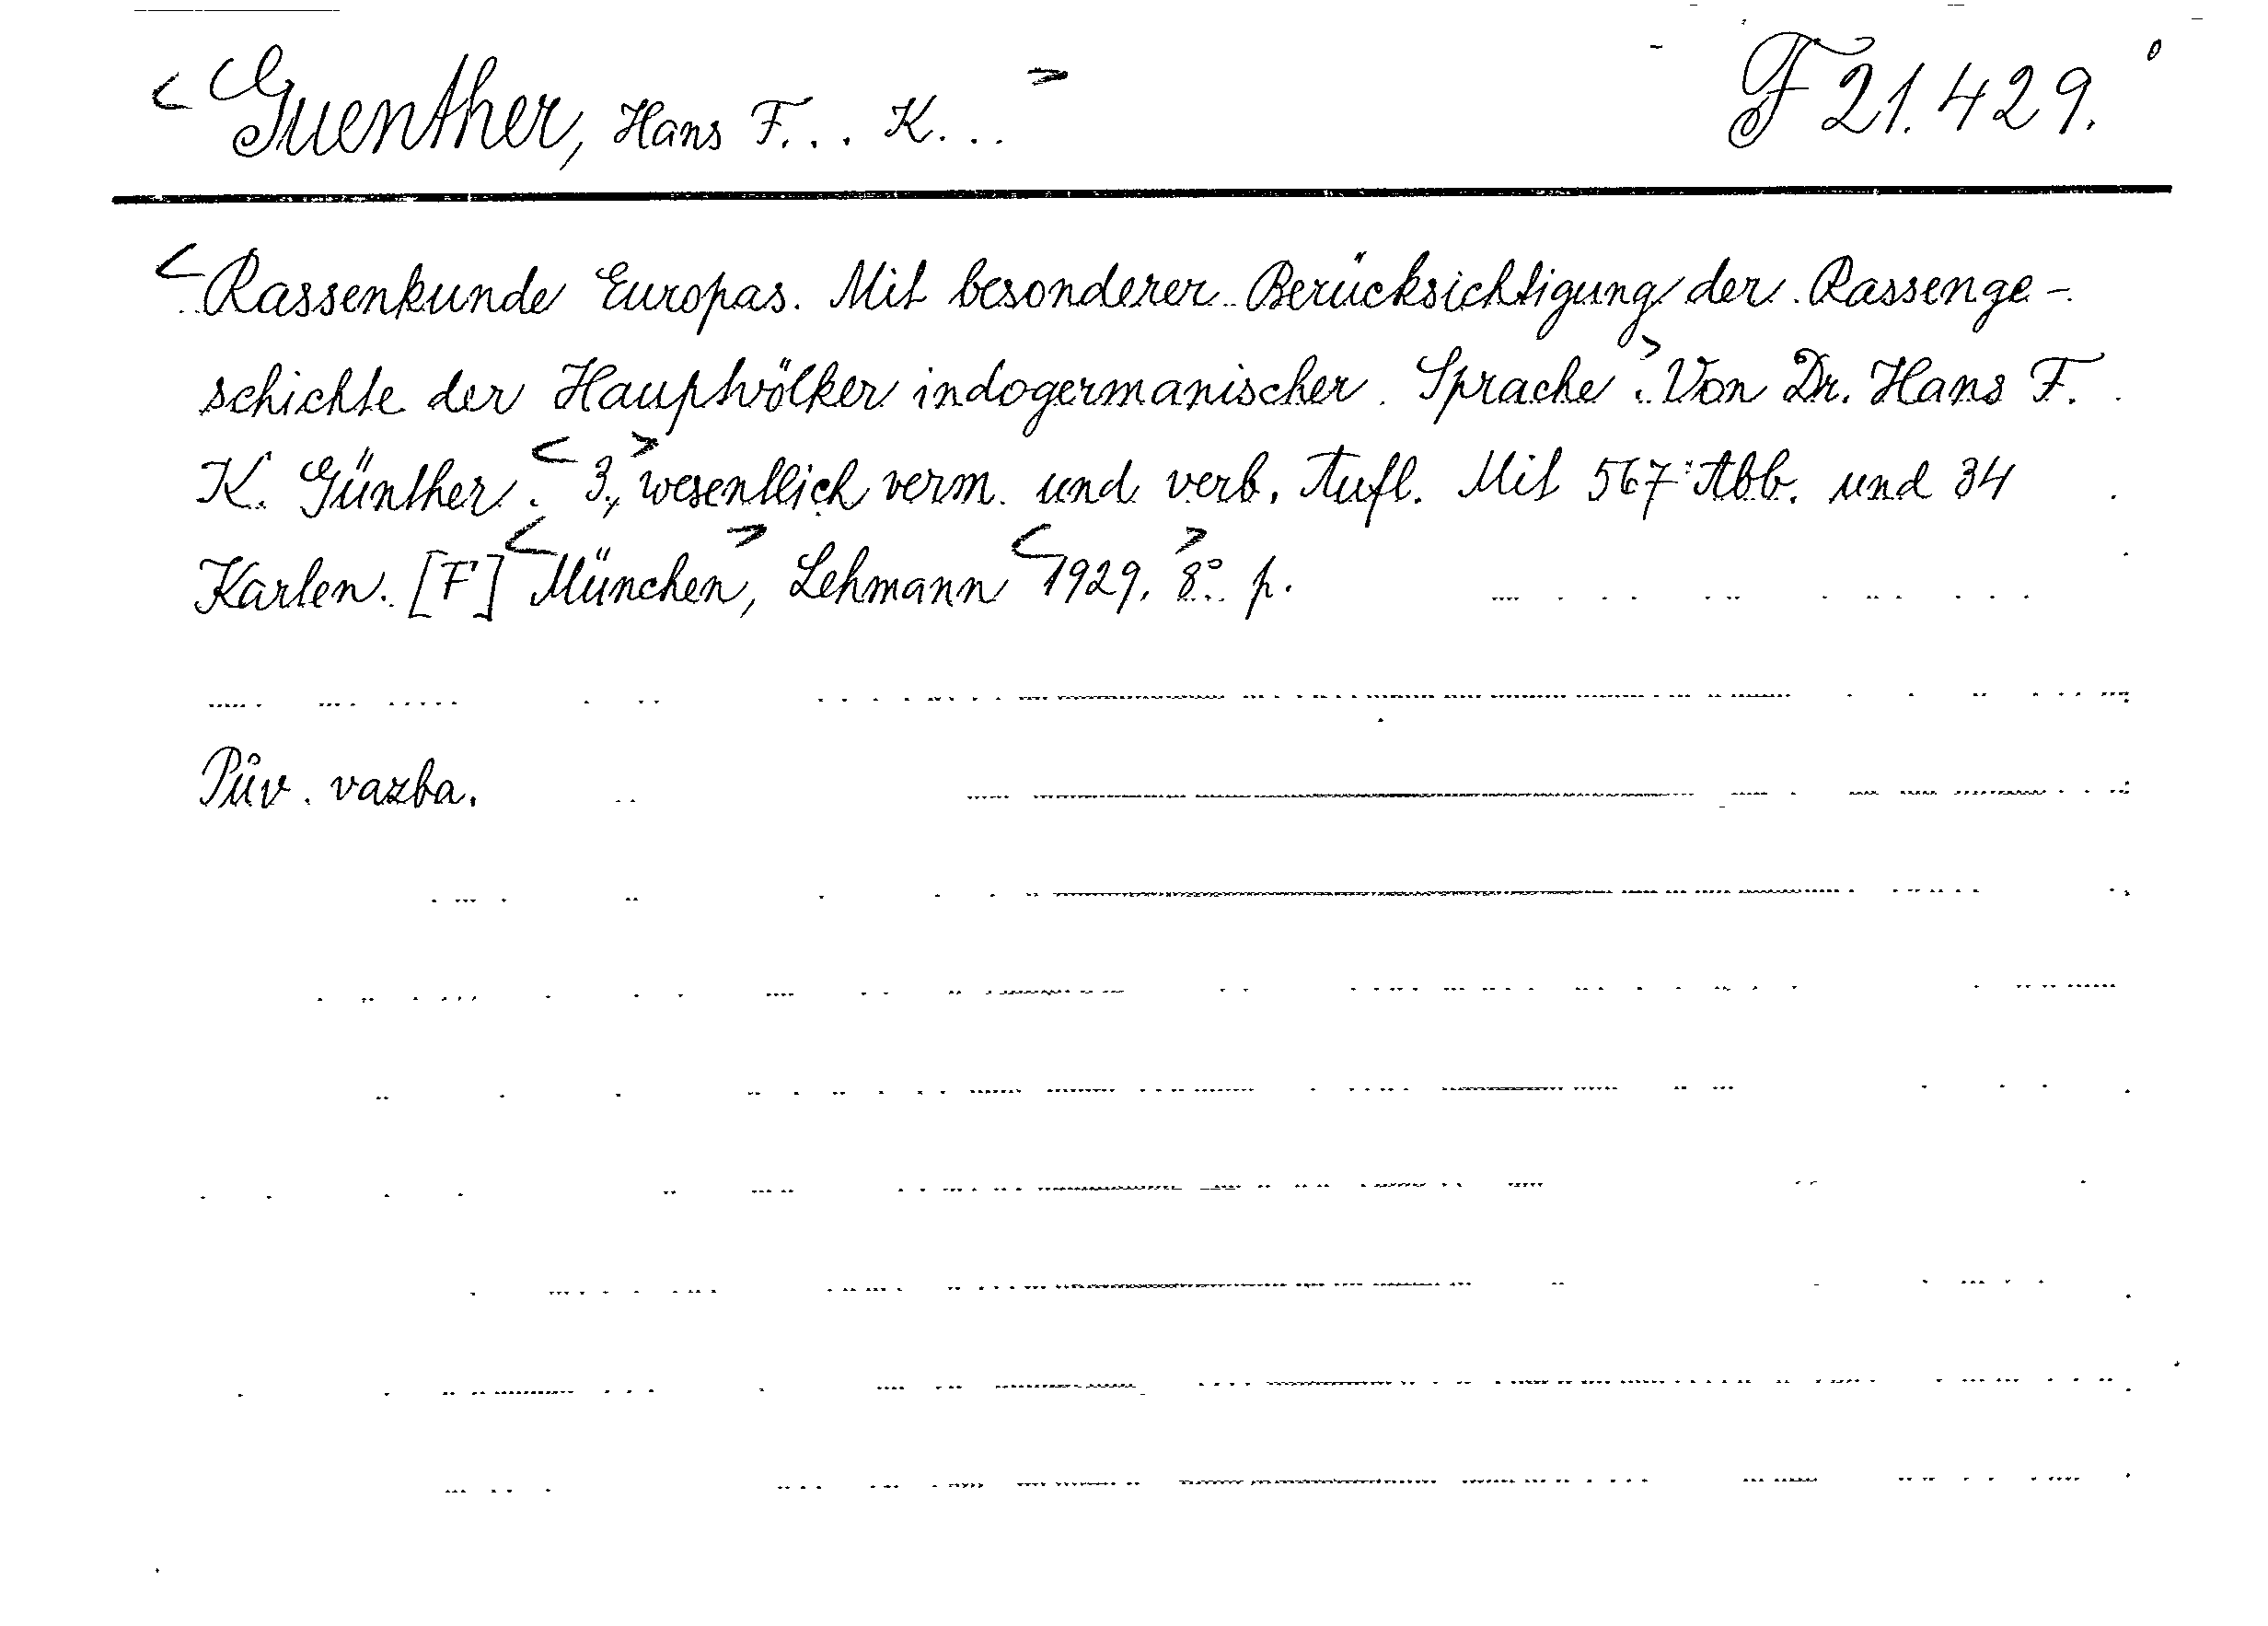 <Guenther, Hans F... K...> F 21.429.
<Rassenkunde Europas. Mit besonderer Berücksichtigung der Rassenge-
schichte der Hauptvölker indogermanischer Sprache>. Von Dr. Hans F.
K. Günther. <3.,> wesentlich verm. und verb. Aufl. Mit 567 Abb. und 34
Karten. [F] <München>, Lehmann <1929.> 8° p.
Pův. vazba.